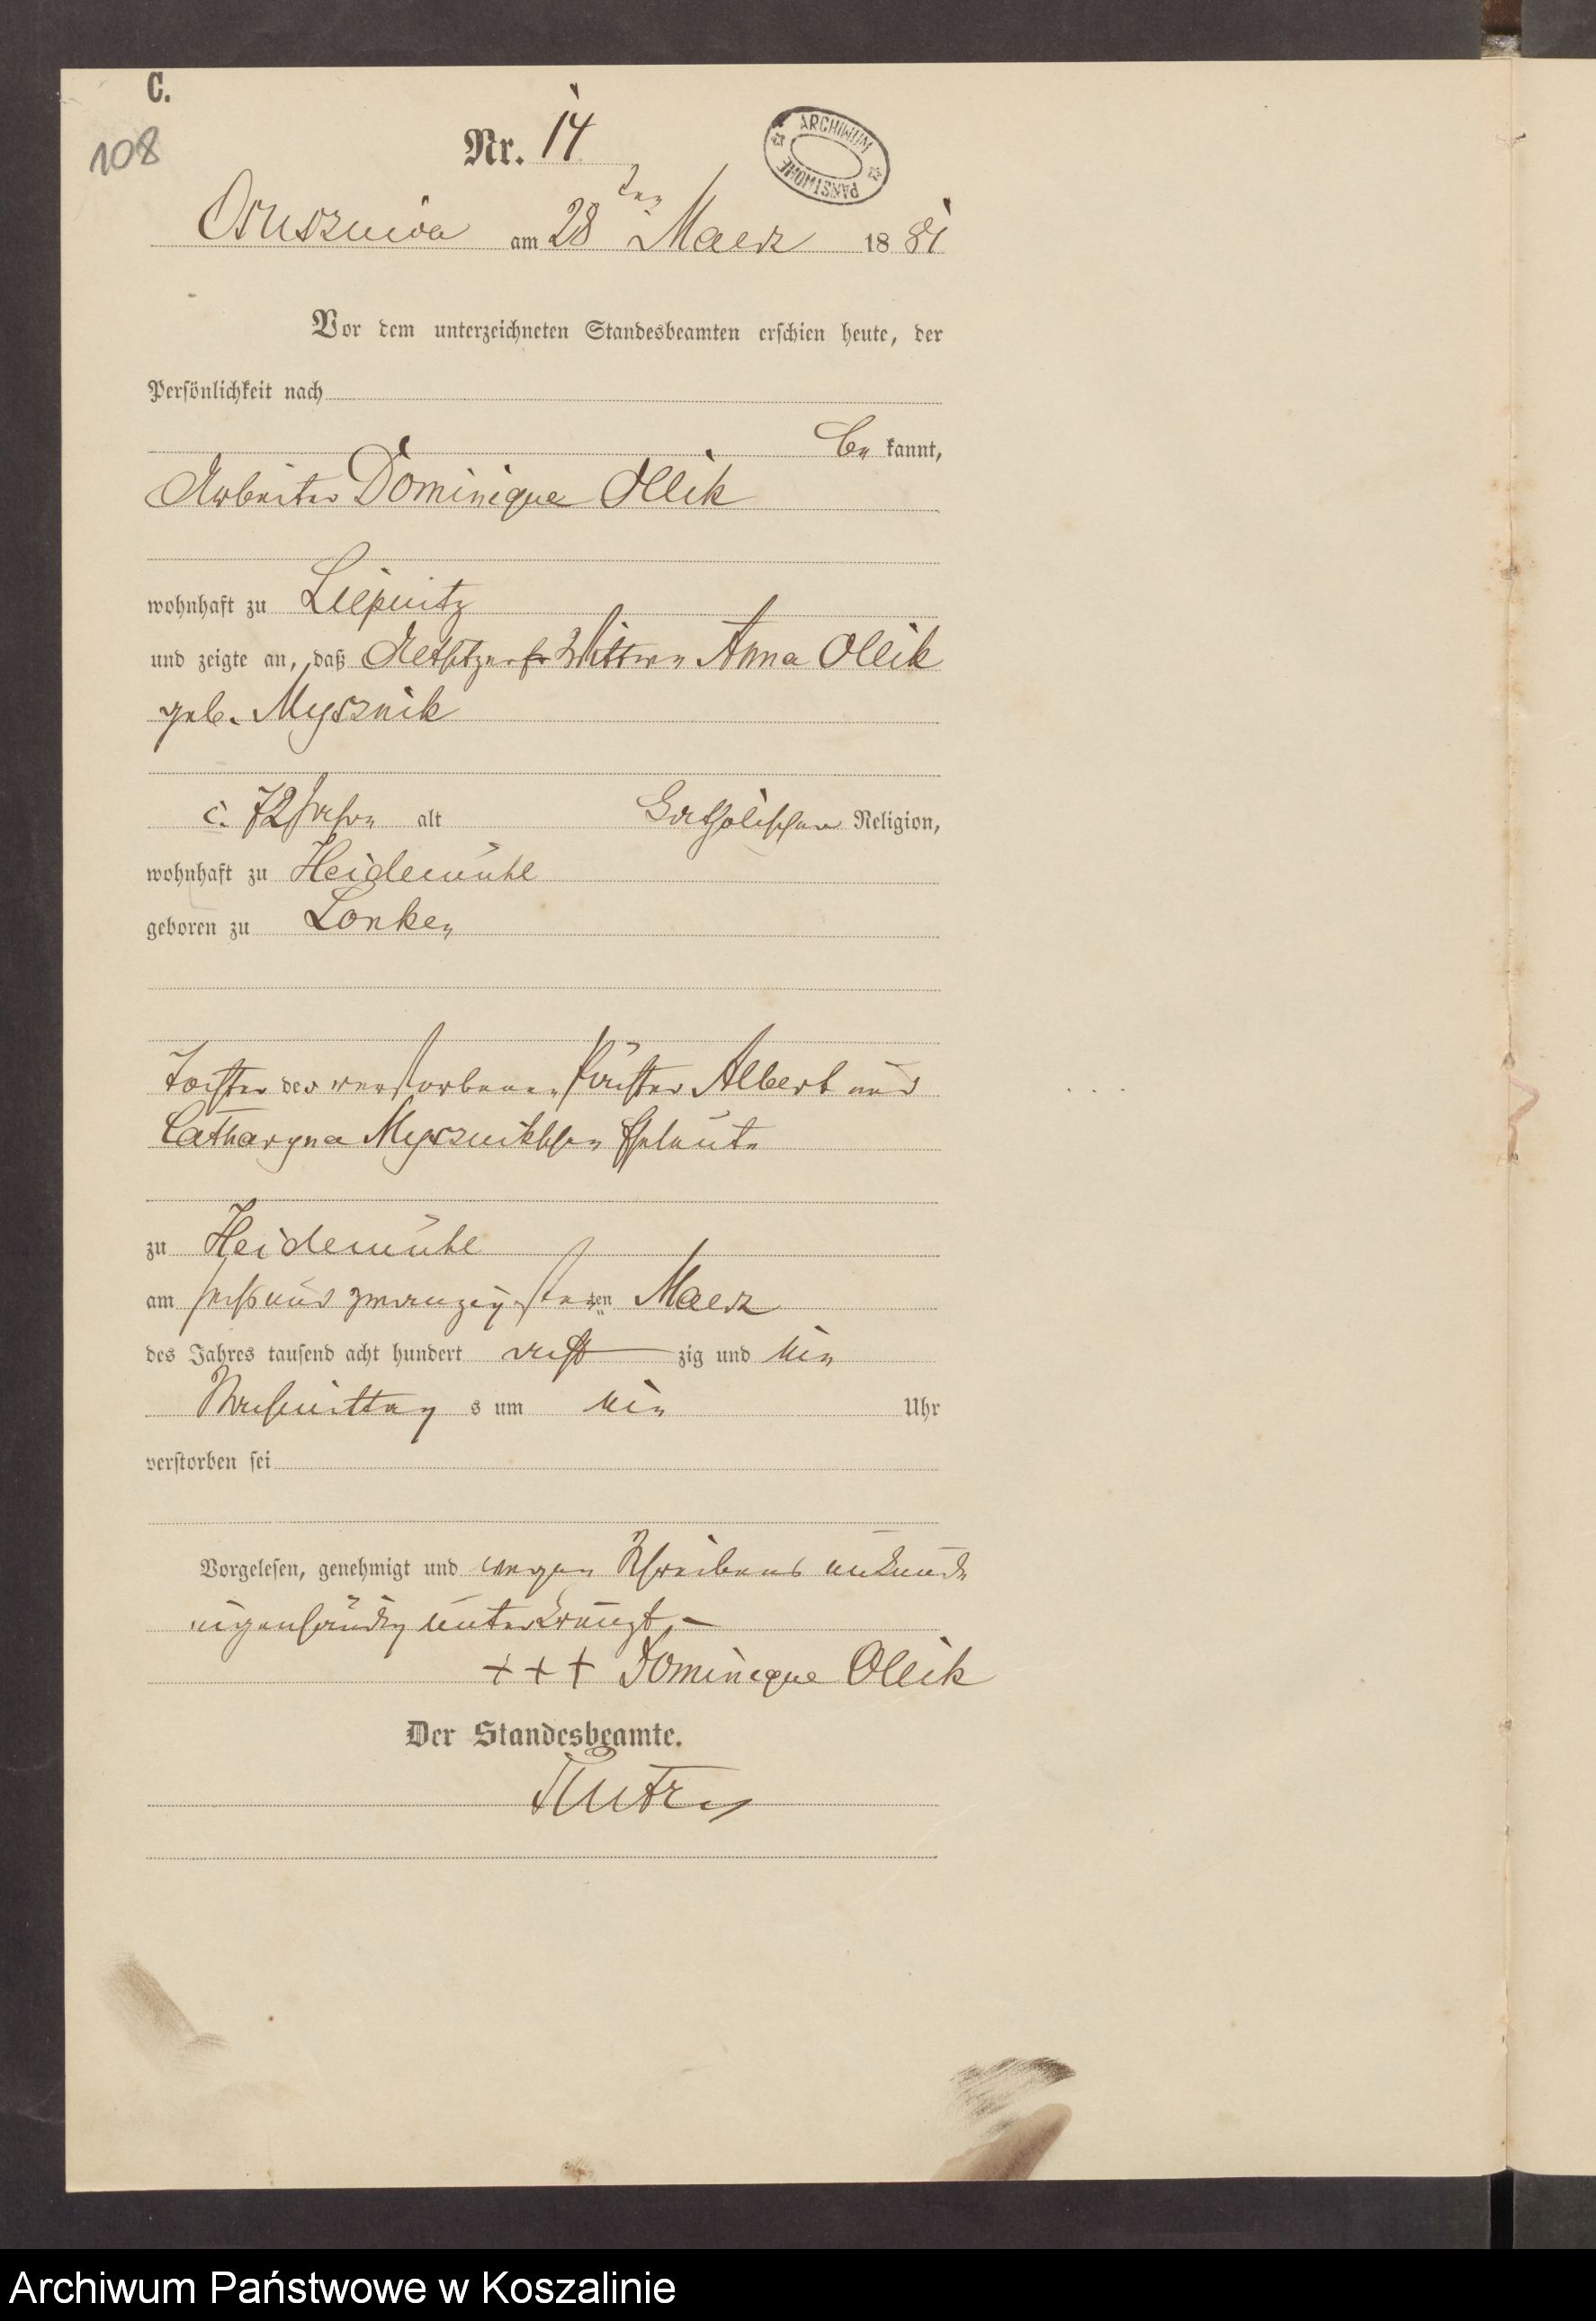 C.
108
Nr. 14
ARCHIWUM PAŃSTWOWE
Osusznica am 28ten Maerz 1881
Vor dem unterzeichneten Standesbeamten erschien heute, der
Persönlichkeit nach
be kannt,
Arbeiter Dominique Ollik
wohnhaft zu Liepnitz
und zeigte an, daß Wittwe Anna Ollik
geb. Mysznik
c. 72 Jahre alt Catholischer Religion,
wohnhaft zu Heidemühl
geboren zu Lonken
Tochter der verstorbenen Albert und
Catharyna Myszniklschen Eheleute
zu Heidemühl
am sechsundzwanzigsten ten Maerz
des Jahres tausend acht hundert acht zig und ein
Nachmittag s um ein Uhr
verstorben sei
Vorgelesen, genehmigt und wegen Schreibens unkunde
eigenhändig unterkreuzt. —
+++ Dominique Ollik
Der Standesbeamte.
Archiwum Państwowe w Koszalinie